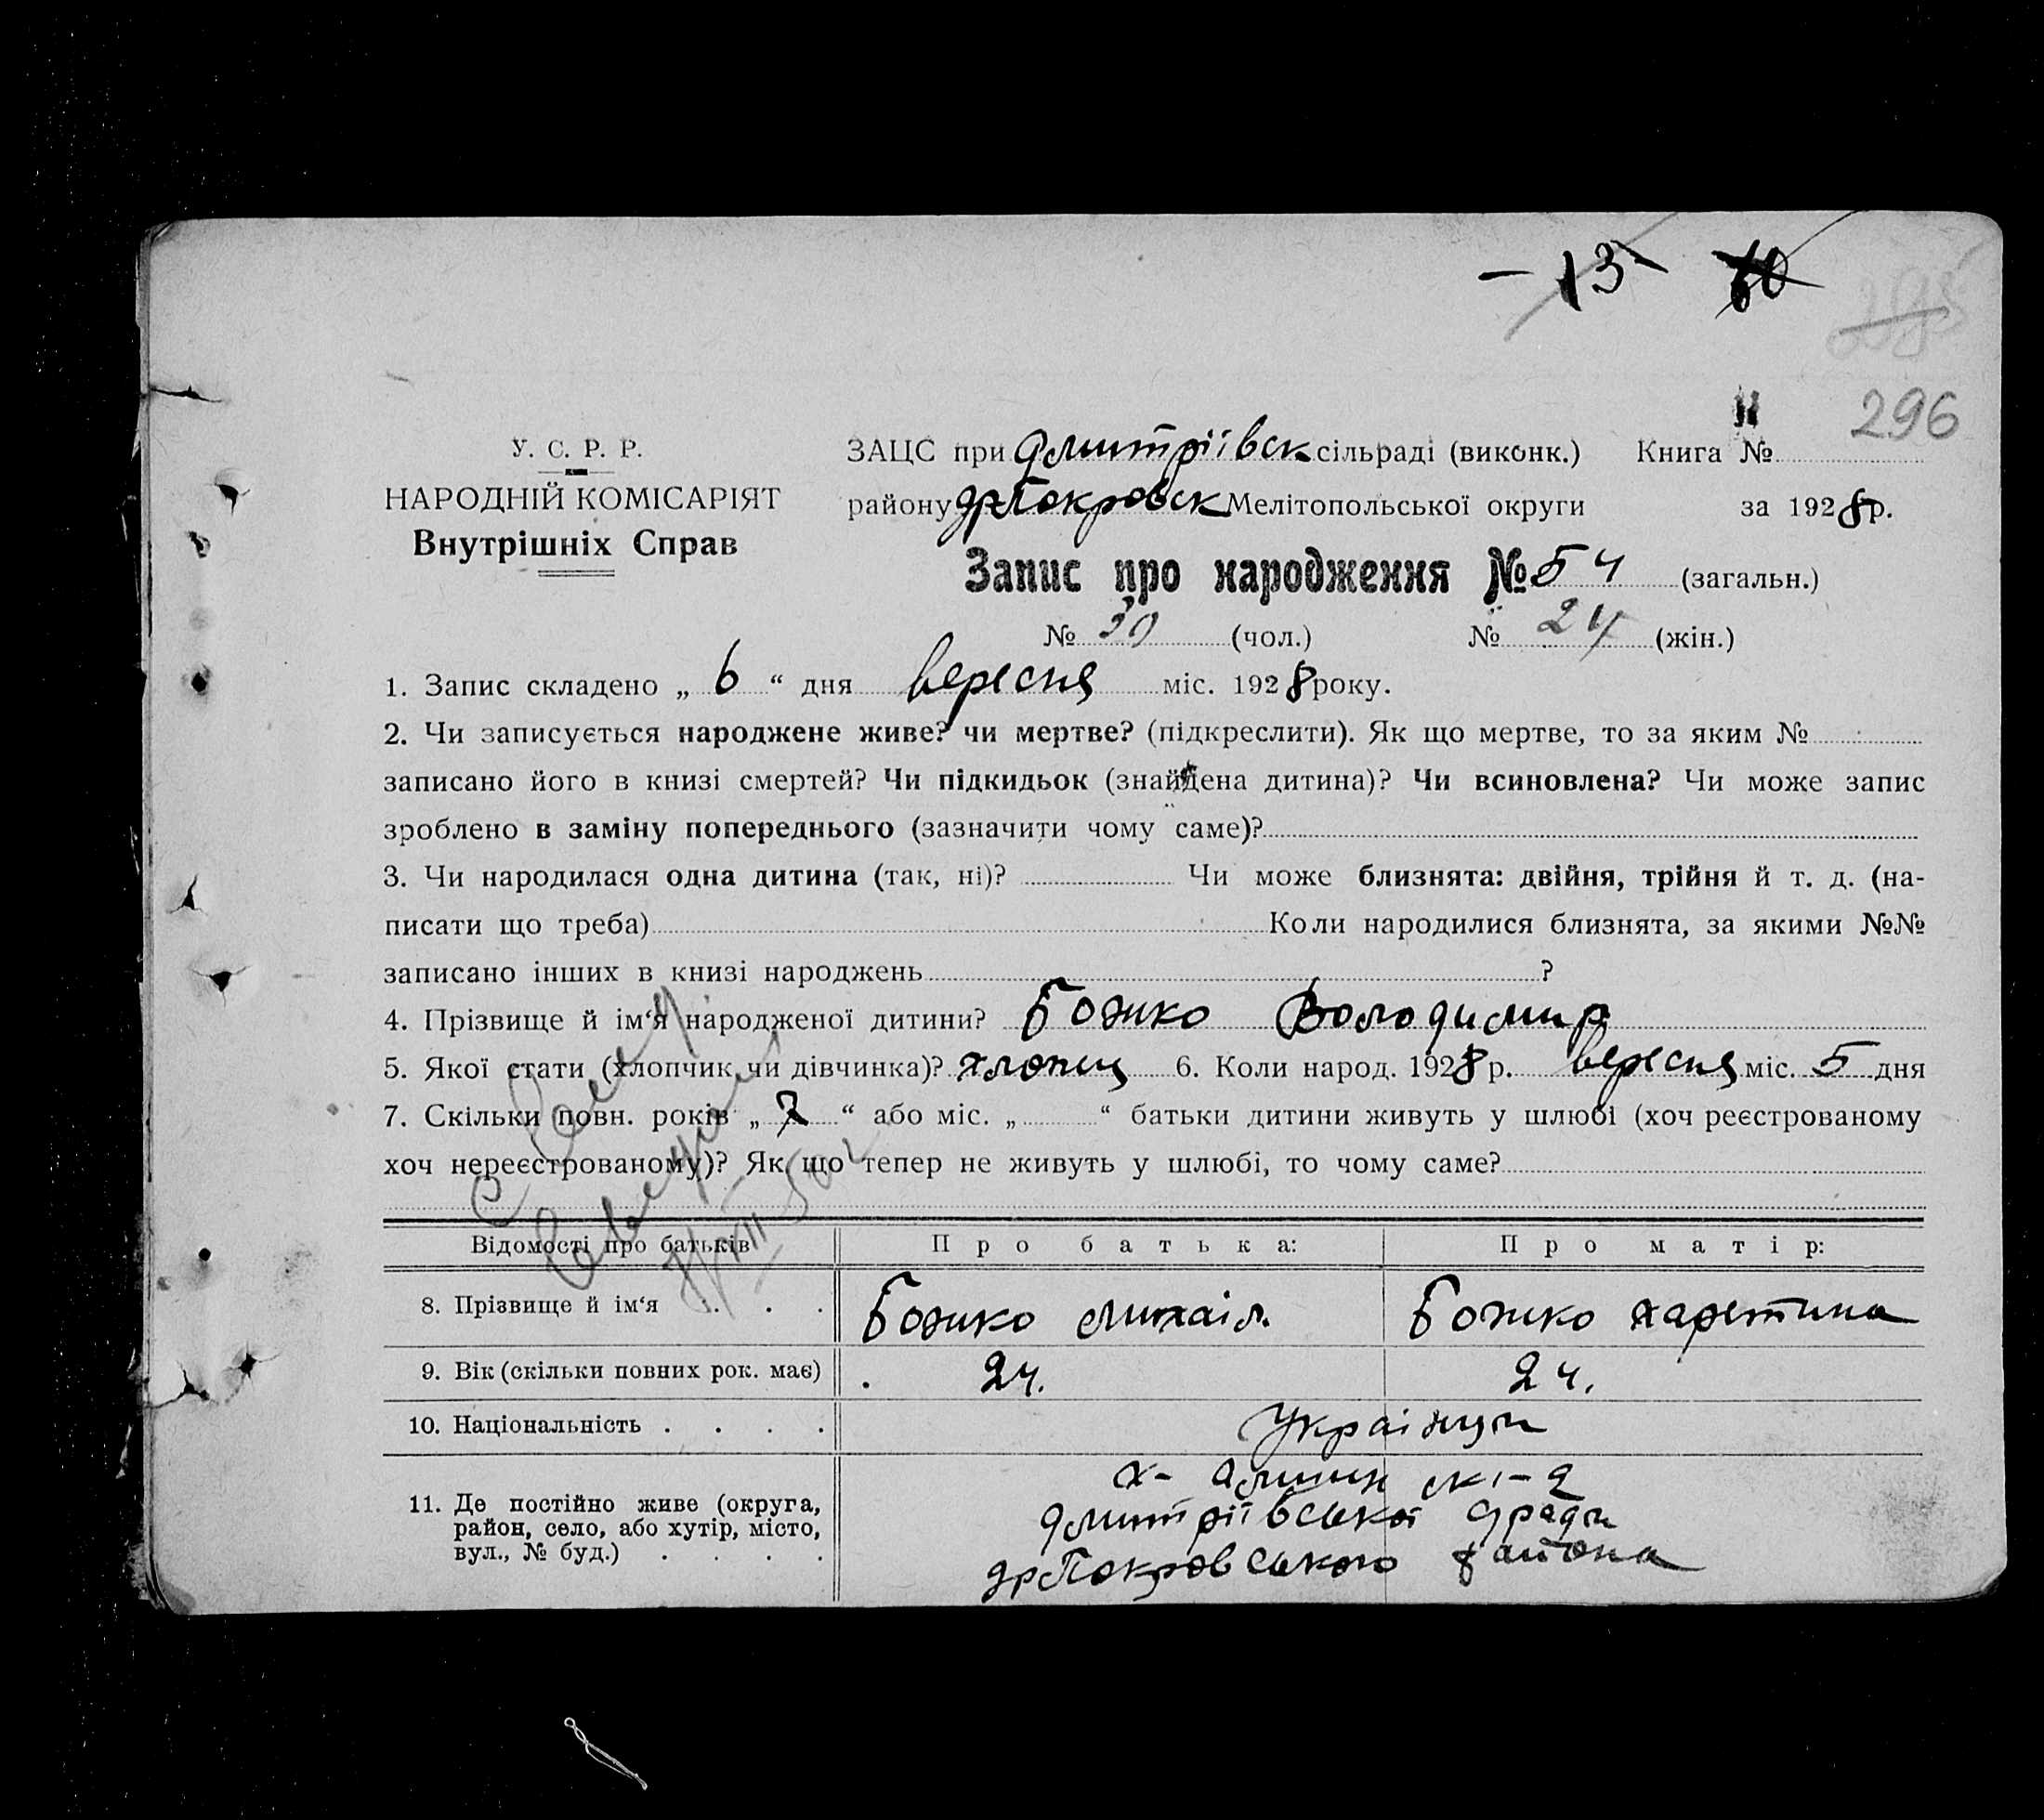 - 13 - 60
295
296
У. С. Р. Р.
НАРОДНІЙ КОМІСАРІЯТ
Внутрішніх Справ
ЗАЦС при Дмитріївск сільраді (виконк.) Книга №
району дрПокровск Мелітопольської округи за 1928 р.
Запис про народження № 54 (загальн.)
№ 30 (чол.) № 24 (жін.)
1. Запис складено „ 6 “ дня вересня міс. 1928 року.
2. Чи записується народжене живе? чи мертве? (підкреслити). Як що мертве, то за яким №
записано його в книзі смертей? Чи підкидьок (знайдена дитина)? Чи всиновлена? Чи може запис
зроблено в заміну попереднього (зазначити чому саме)?
3. Чи народилася одна дитина (так, ні)? Чи може близнята: двійня, трійня й т. д. (на-
писати що треба) Коли народилися близнята, за якими №№
записано інших в книзі народжень ?
4. Прізвище й ім‘я народженої дитини? Божко Володимир
5. Якої стати (хлопчик чи дівчинка)? хлопец 6. Коли народ. 1928 р. вересня міс. 5 дня
7. Скільки повн. років „ 7 “ або міс. „ “ батьки дитини живуть у шлюбі (хоч реєстрованому
хоч нереєстрованому)? Як що тепер не живуть у шлюбі, то чому саме?
Відомості про батьків Про батька: Про матір:
8. Прізвище й ім‘я . . . Божко Михаіл. Божко Харетина
9. Вік (скільки повних рок. має) 24. 24.
10. Національність . . . . Украінци
11. Де постійно живе (округа,
район, село, або хутір, місто,
вул., № буд.) . . . .
х-
Дмитріївської с/ради
дрПокровського района